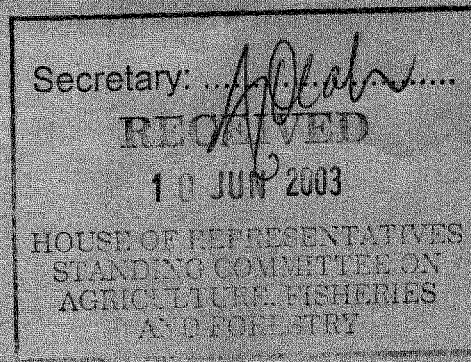 Secretary:
RECEIVED
10 JUN 2003
HOUSE OF REPRESENTATIVES
STANDING COMMITTEE ON
AGRICULTURE, FISHERIES
AND FORESTRY